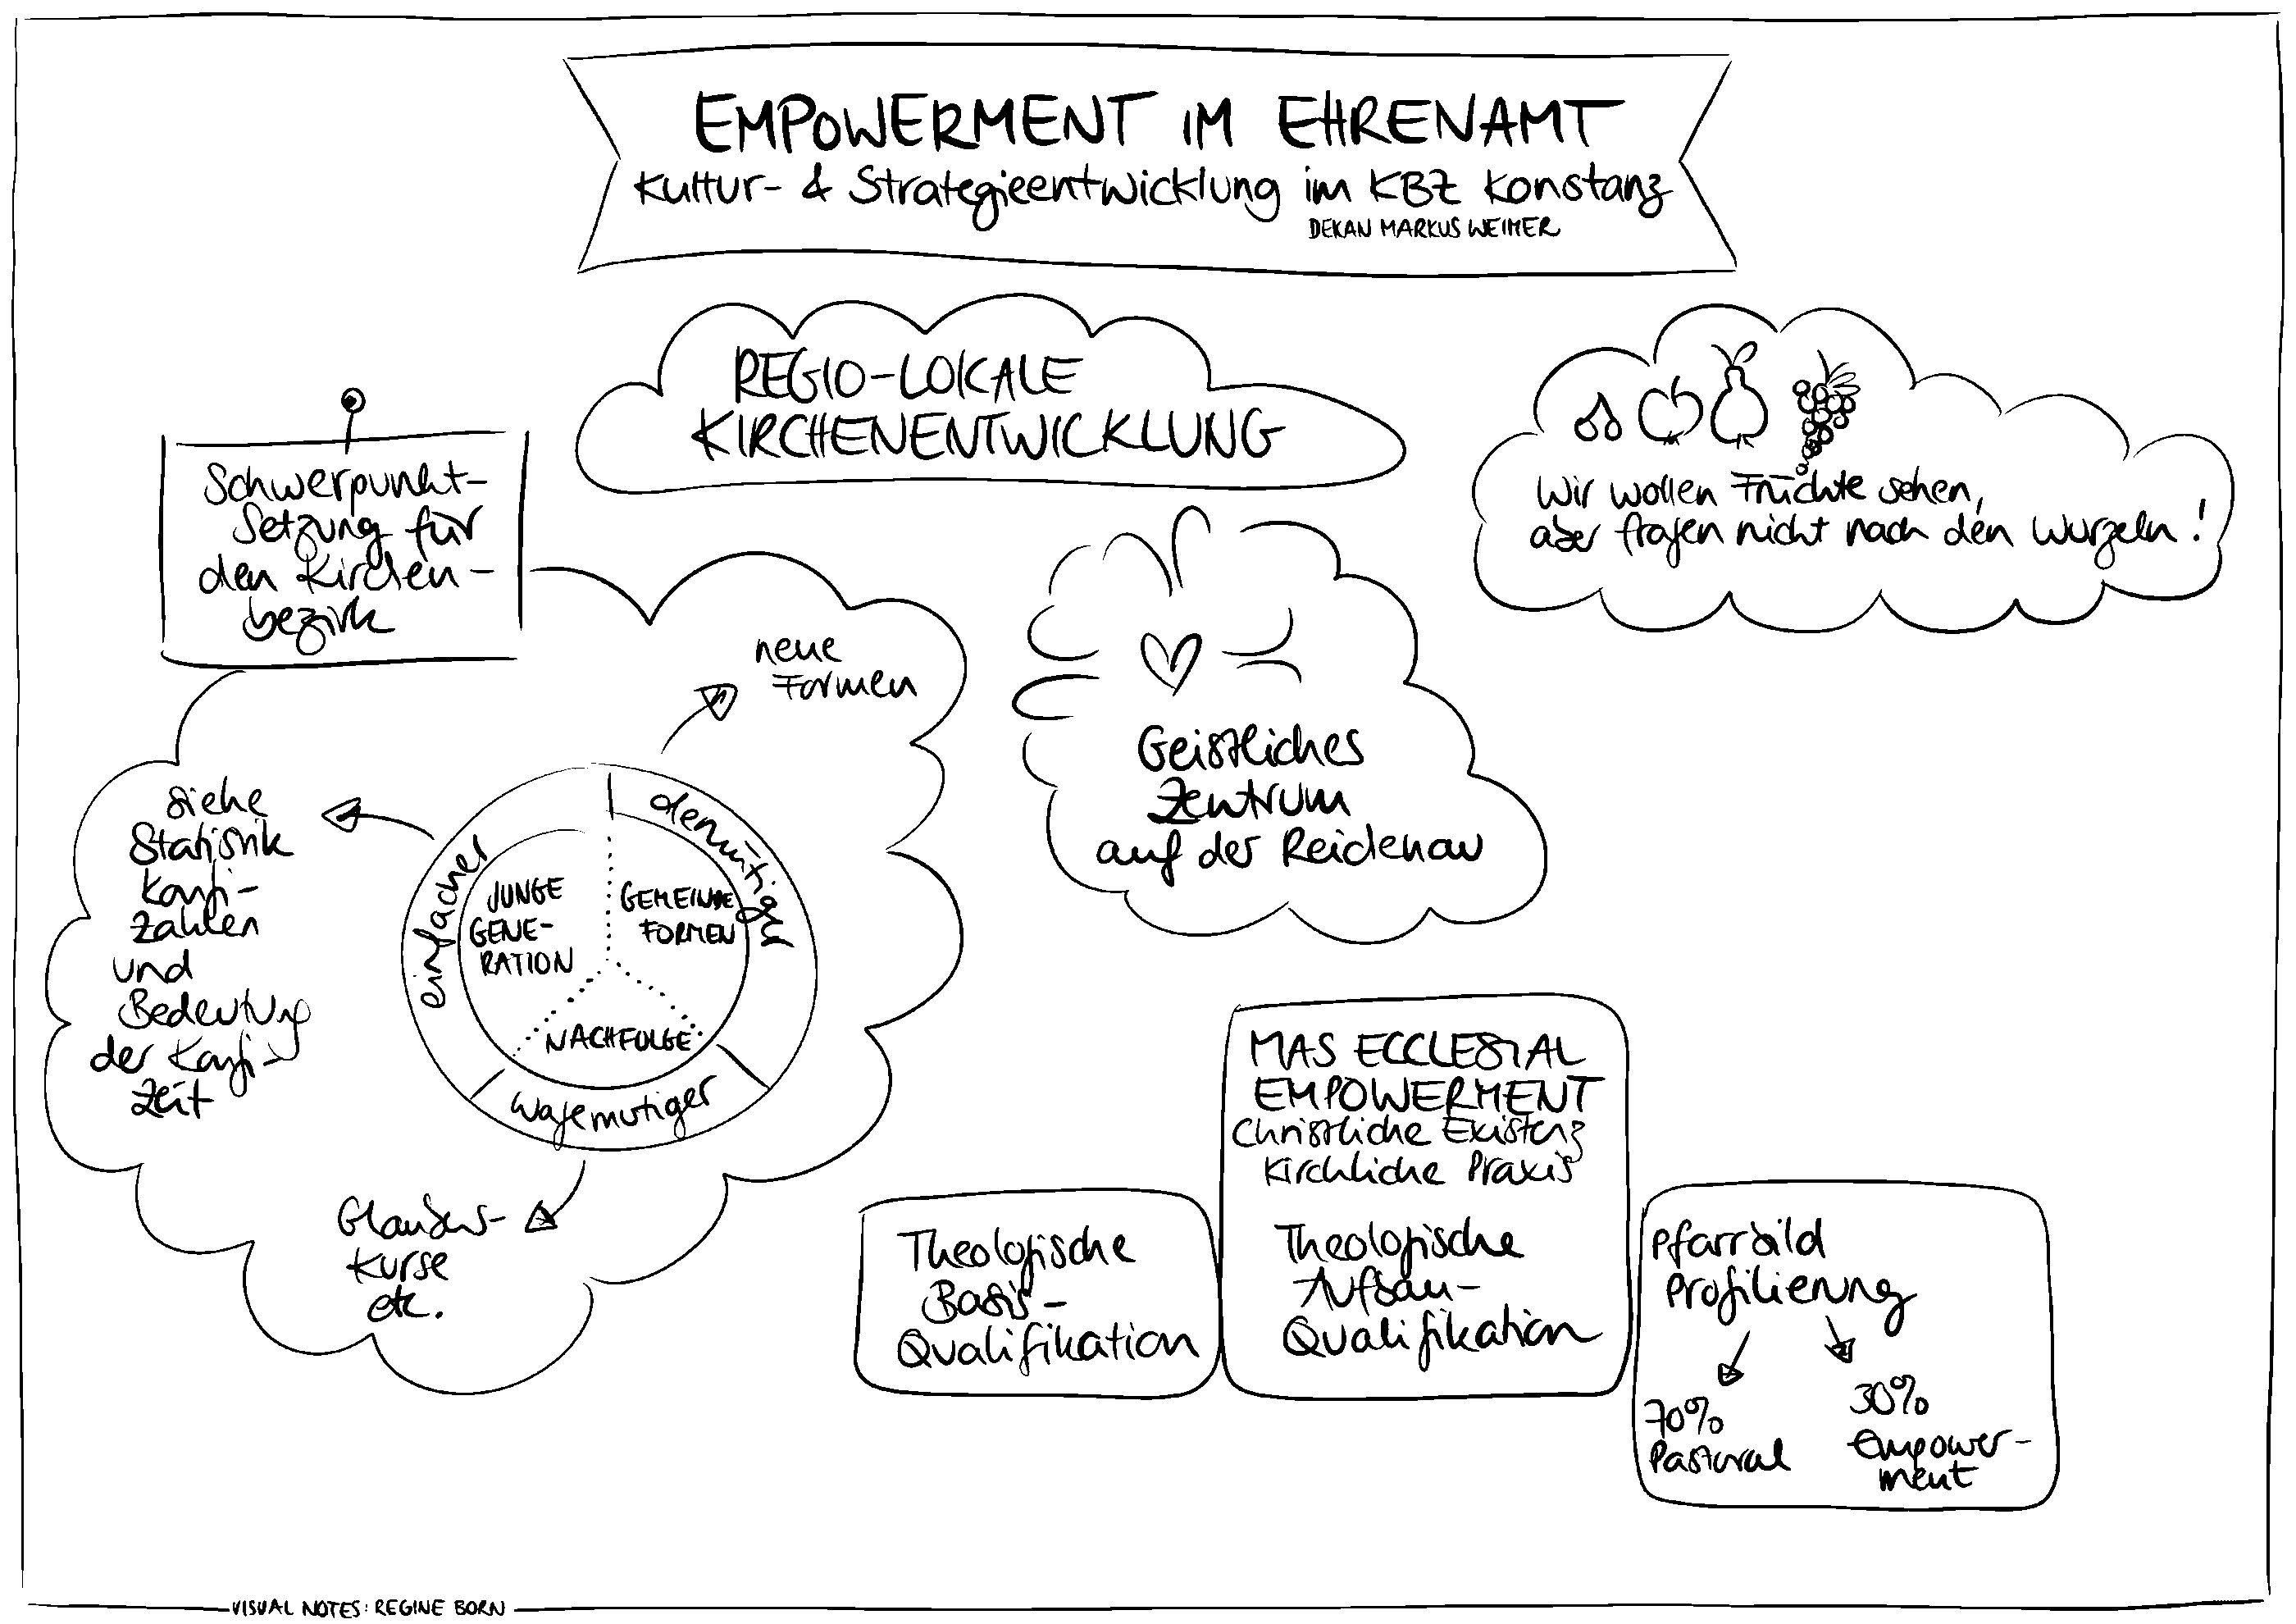 EMPOWERMENT IM EHRENAMT
Kultur- & Strategieentwicklung im KBZ Konstanz
DEKAN MARKUS WEIMER
REGIO-LOKALE
KIRCHENENTWICKLUNG
Wir wollen Früchte sehen,
aber fragen nicht nach den Wurzeln!
Schwerpunkt-
Setzung für
den Kirchen-
bezirk
neue
Formen
siehe
Statistik
Konfi-
Zahlen
und
Bedeutung
der Konfi-
zeit
einfacher
demütiger
wagemutiger
JUNGE
GENE-
RATION
GEMEINDE
FORMEN
NACHFOLGE
Glaubens-
kurse
etc.
Geistliches
Zentrum
auf der Reichenau
Theologische
Basis-
Qualifikation
MAS ECCLESIAL
EMPOWERMENT
Christliche Existenz
Kirchliche Praxis
Theologische
Aufbau-
Qualifikation
Pfarrbild
Profilierung
70%
Pastoral
30%
Empower-
ment
VISUAL NOTES: REGINE BORN